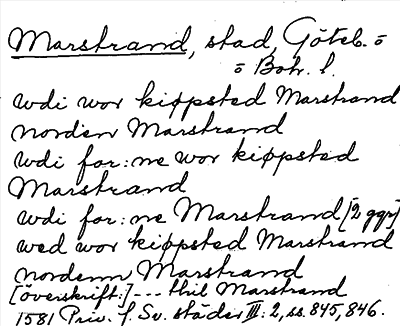 Marstrand, stad, Göteb. o
o Boh. l.
wdi wor kiøpsted Marstrand
norden Marstrand
wdi for:ne wor kiøpsted
Marstrand
wdi for:ne Marstrand [2 ggr]
wed wor kiøpsted Marstrand
nordenn Marstrand
[överskrift:] --- thil Marstrand
1581 Priv. f. Sv. städer III: 2, ss. 845, 846.